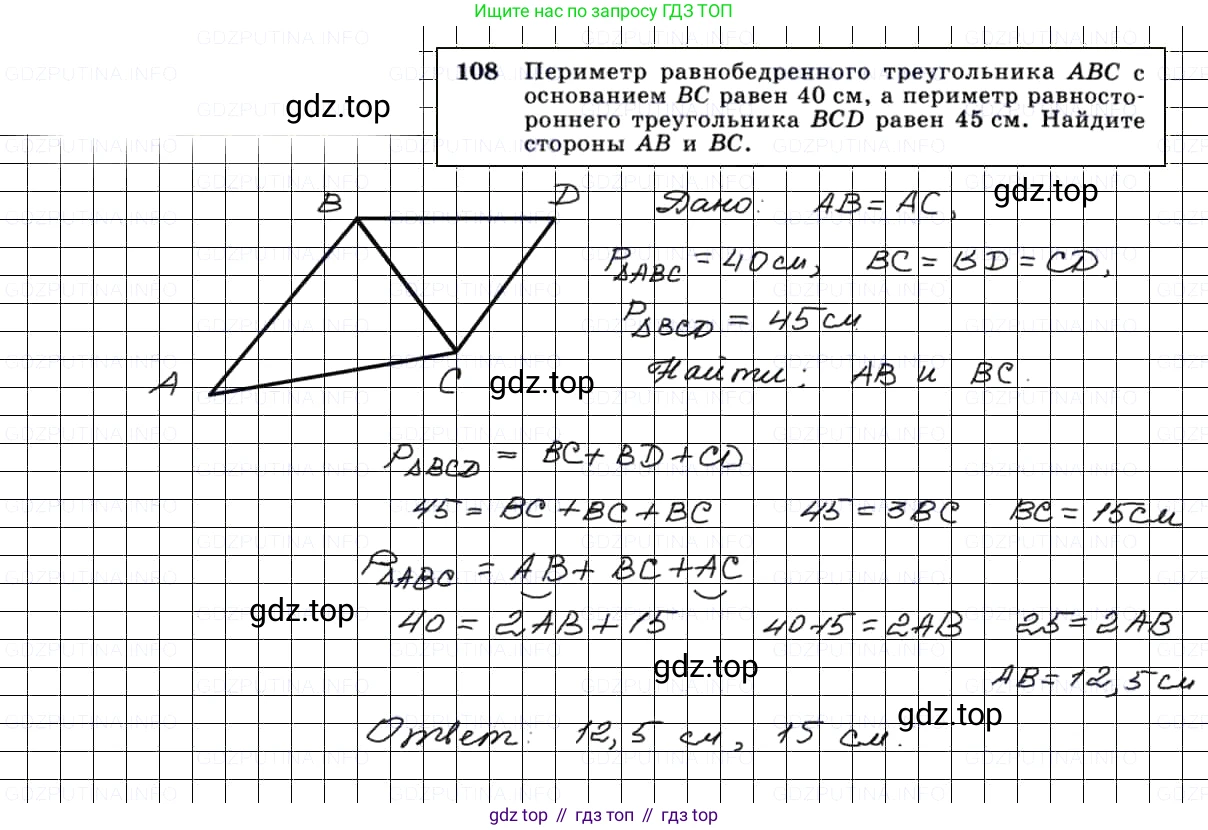 Ищите нас по запросу ГДЗ ТОП
108 Периметр равнобедренного треугольника ABC с
основанием BC равен 40 см, а периметр равносто-
роннего треугольника BCD равен 45 см. Найдите
стороны AB и BC.
gdz.top
gdz.top
B D
Дано: AB = AC,
P△ABC = 40 см, BC = BD = CD,
P△BCD = 45 см
A C
gdz.top
Найти: AB и BC.
P△BCD = BC + BD + CD
45 = BC + BC + BC 45 = 3BC BC = 15 см
P△ABC = AB + BC + AC
gdz.top
40 = 2AB + 15 40-15 = 2AB 25 = 2AB
gdz.top
AB = 12,5 см
gdz.top
Ответ: 12,5 см, 15 см.
GDZPUTINA.INFO
gdz.top // гдз топ // гдз.top